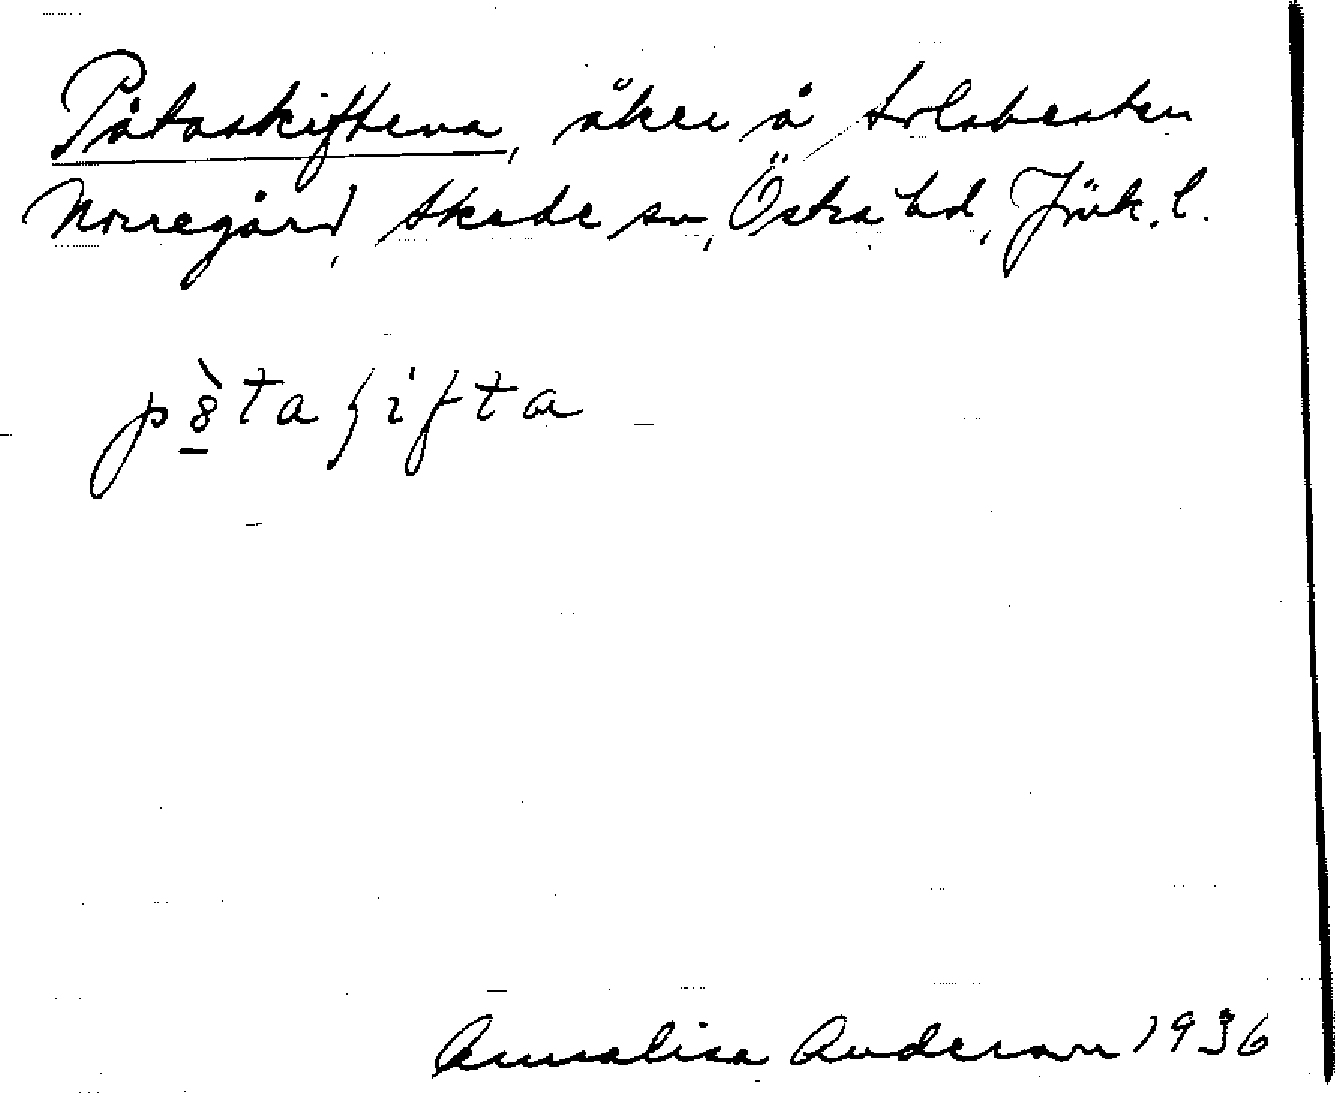 Påtaskiftena, åker å Solsbesten
Norregård, Skede sn, Östra hd, Jönk. l.
pȣ̀taʃifta
Annalisa Anderson 1936